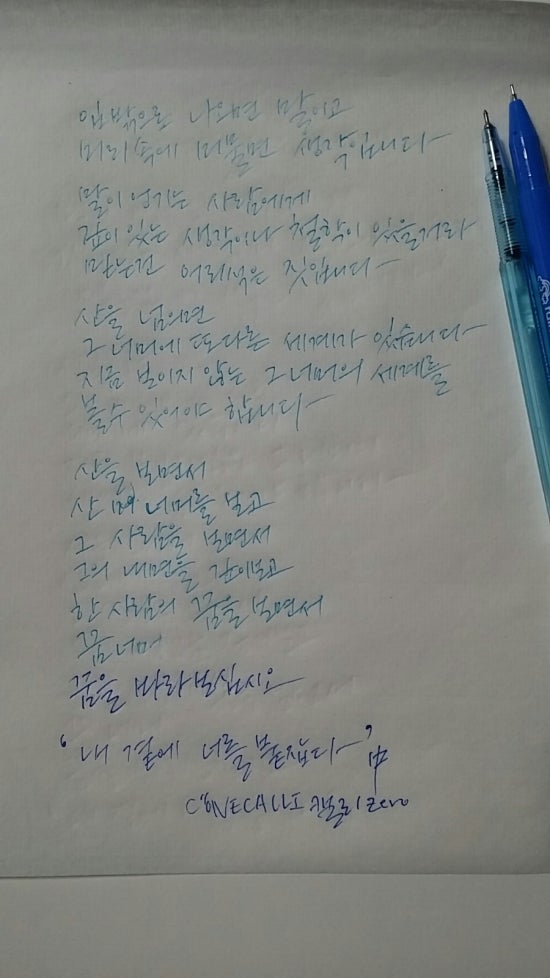 입 밖으로 나오면 말이고
머리 속에 머물면 생각입니다
말이 넘기는 사람에게
깊이 있는 생각이나 철학이 있을거라
믿는건 어리석은 짓입니다
산을 넘으면
그 너머에 또다른 세계가 있습니다
지금 보이지 않는 그 너머의 세계를
볼수 있어야 합니다
산을 보면서
산 너머를 보고
그 사람을 보면서
그의 내면을 깊이보고
한 사람의 꿈을 보면서
꿈너머
꿈을 바라보십시오
'내 곁에 너를 붙잡다' 中
Zero